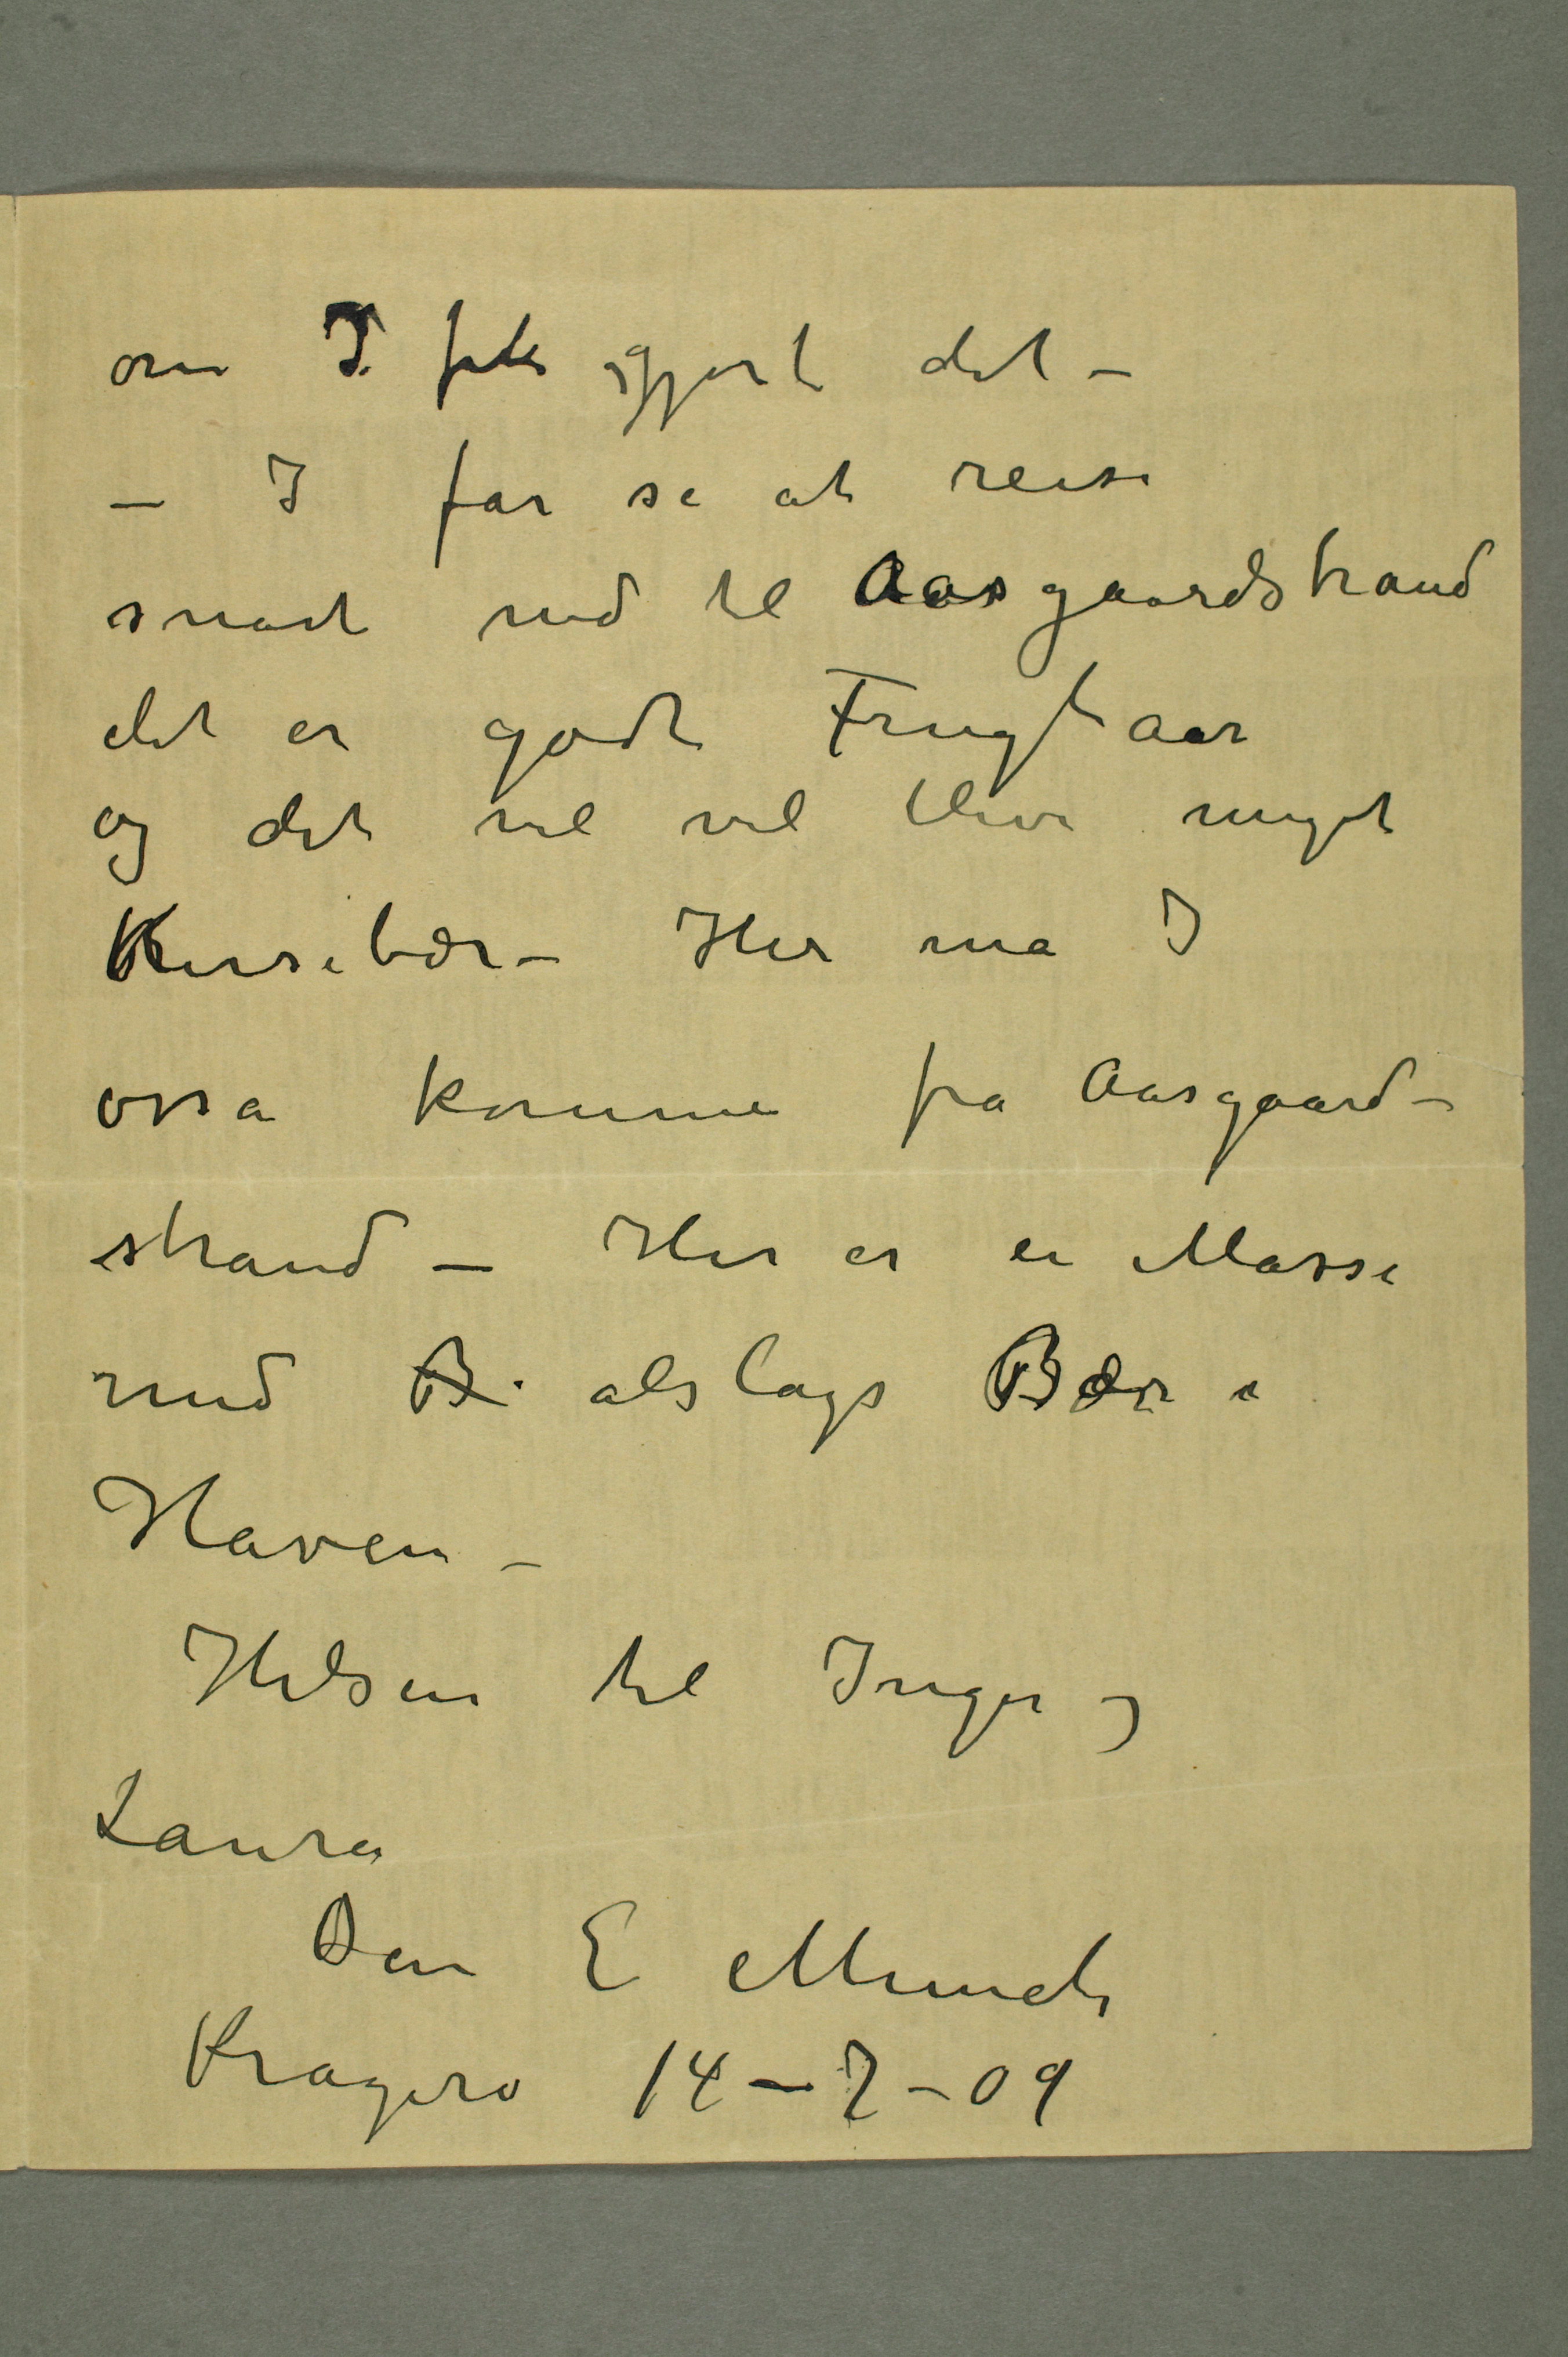 om I fik gjort det –
– I får se at reise
snart ned til Aasgaardstrand
det er godt Frugtaar
og det vil vel blive meget
Kirsebær – Her må I
osså komme fra Aasgaard-
strand – Her er en Masse
med B. alslags Bær i
Haven –
Hilsen til Inger og
Laura
Din E Munch
Kragerø 14 – 7 – 09